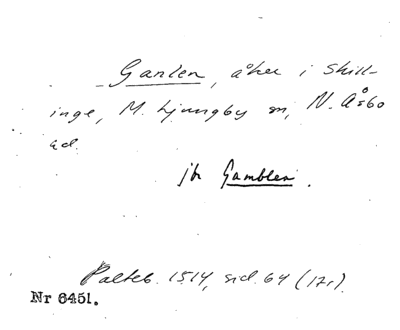 Ganlen, åker i Skill-
inge, M. Ljungby sn, N. Åsbo
hd.
jfr Gamblen.
Palteb. 1514, sid. 64 (171).
Nr 6451.